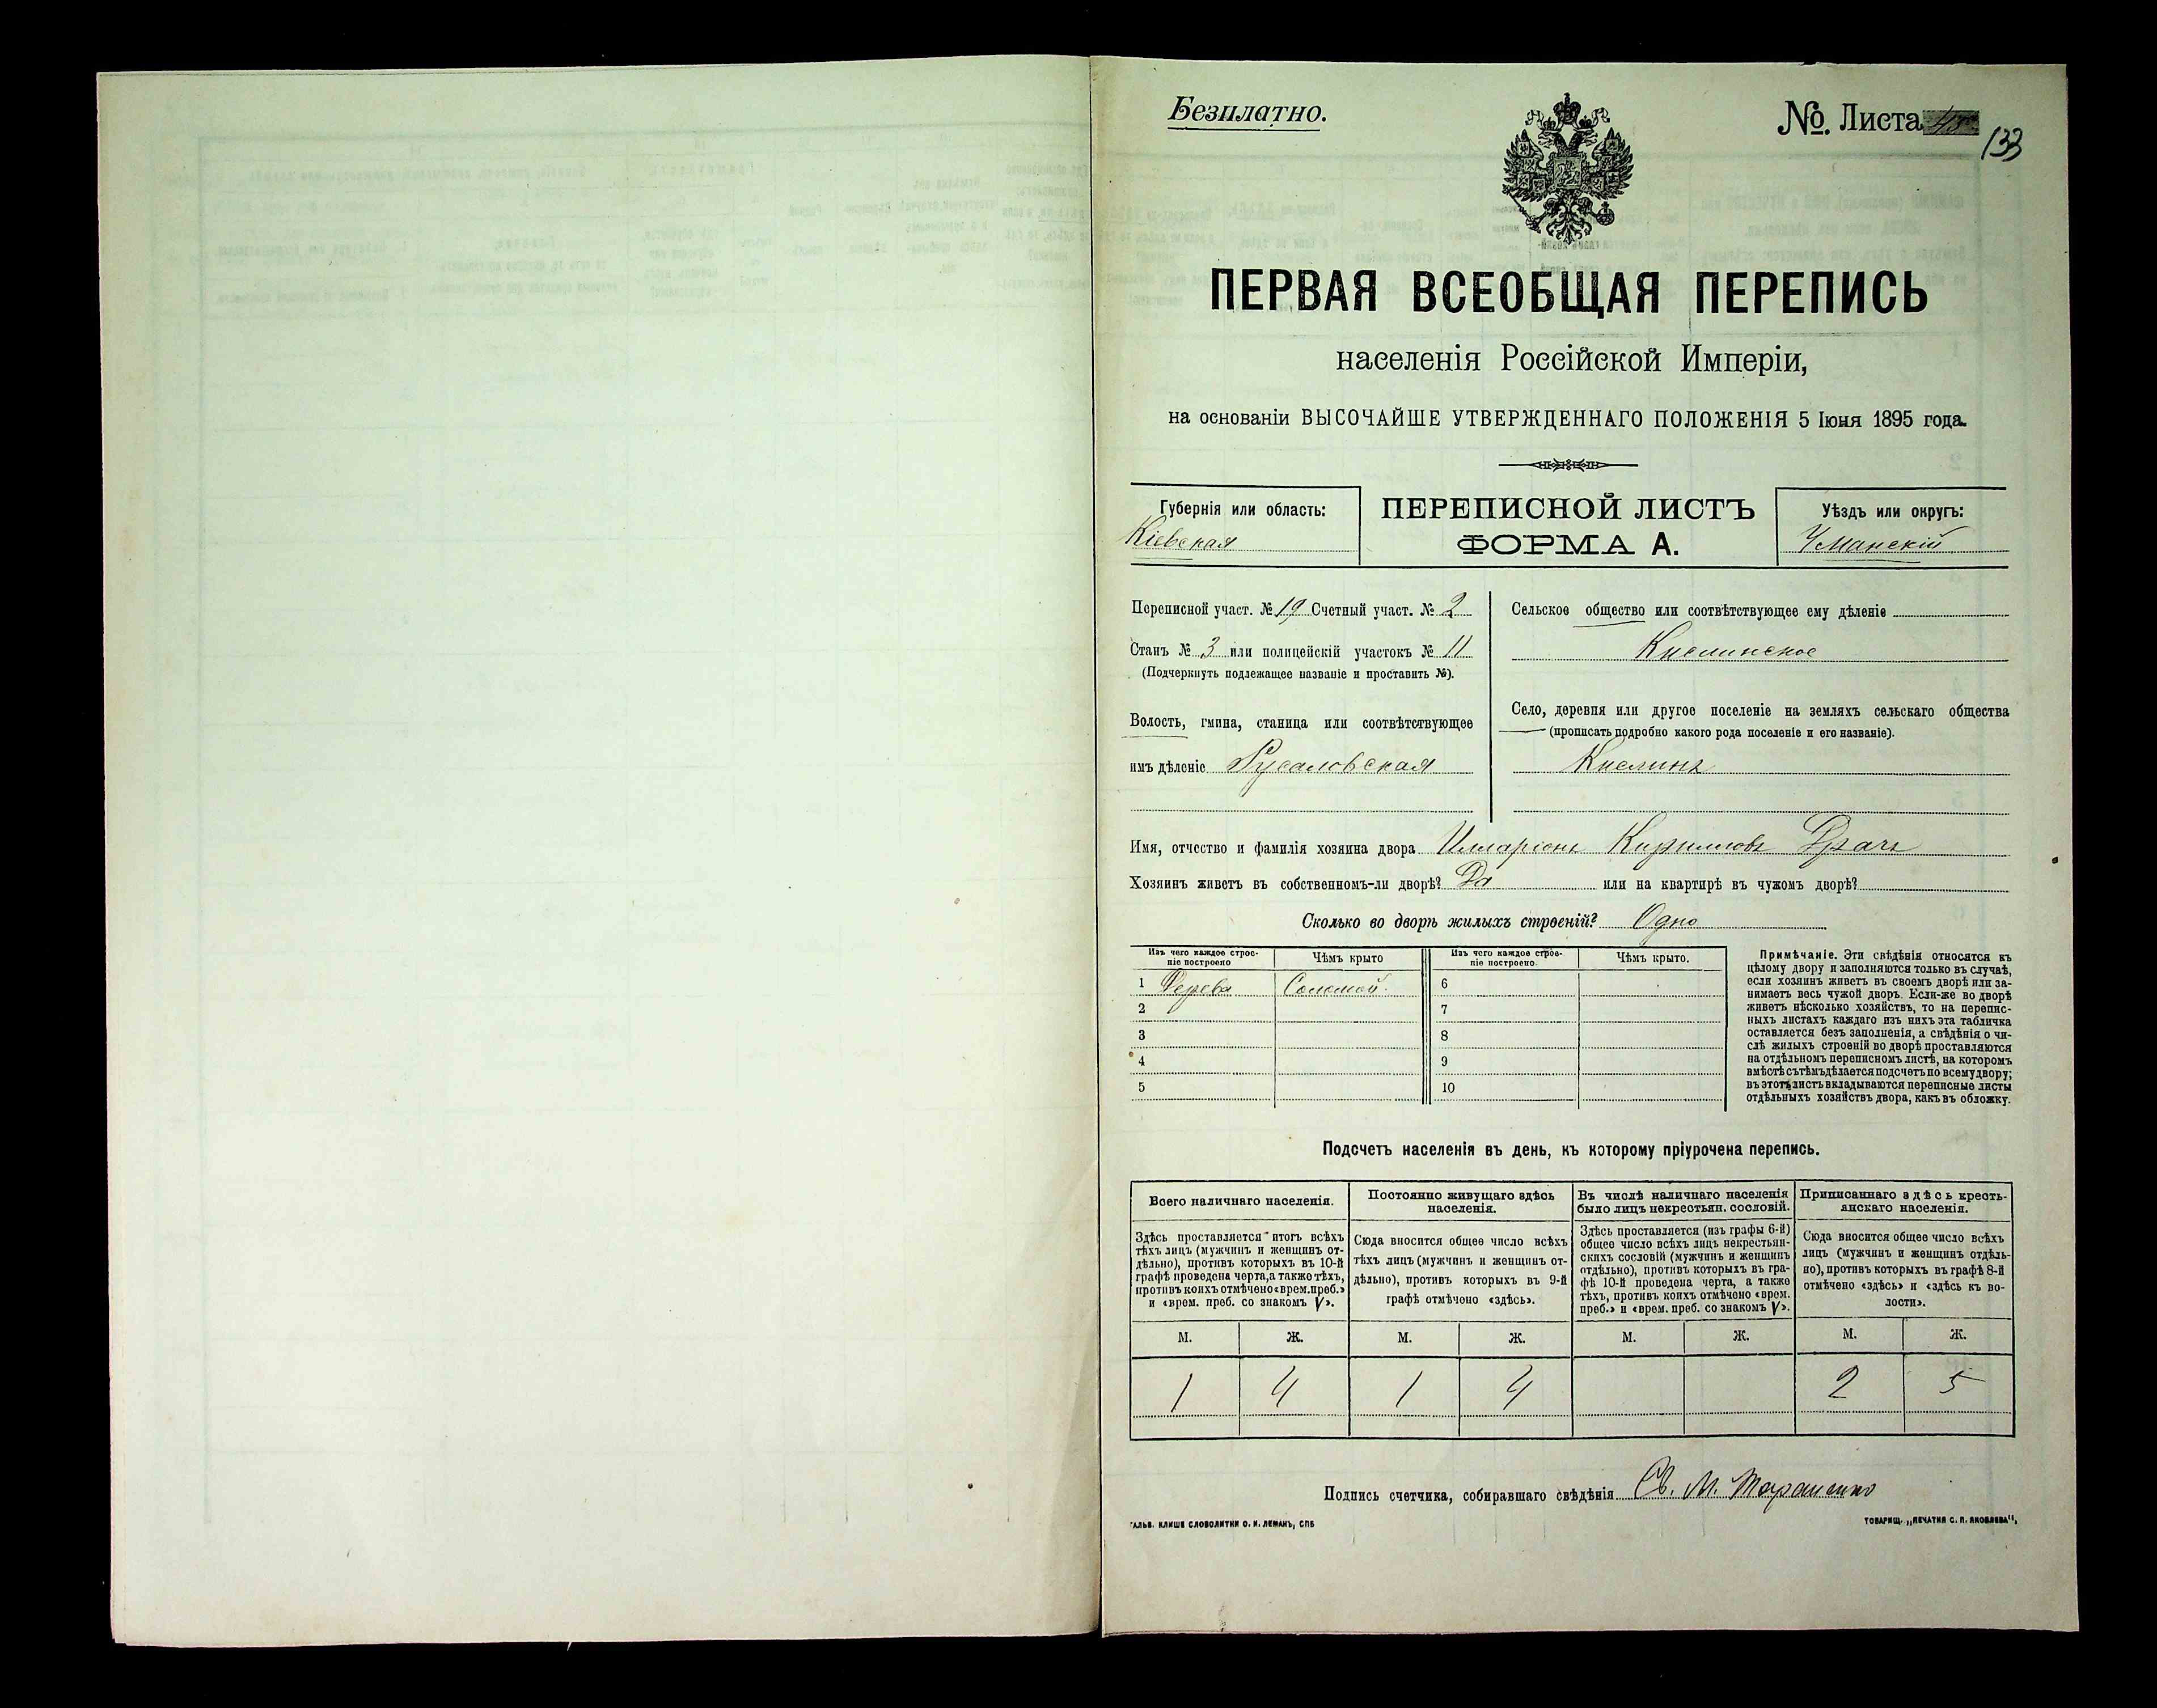 Безплатно.
№. Листа
133
ПЕРВАЯ ВСЕОБЩАЯ ПЕРЕПИСЬ
населенія Россійской Имперіи,
на основаніи ВЫСОЧАЙШЕ УТВЕРЖДЕННАГО ПОЛОЖЕНІЯ 5 Іюня 1895 года.
Губернія или область:
Кіевская
ПЕРЕПИСНОЙ ЛИСТЪ
ФОРМА А.
Уѣздъ или округъ:
Уманскій
Переписной участ. № 19 Счетный участ. № 2
Станъ № 3 или полицейскій участокъ № 11
(Подчеркнуть подлежащее названіе и проставить №).
Волость, гмина, станица или соотвѣтствующее
имъ дѣленіе Русаловская
Сельское общество или соотвѣтствующее ему дѣленіе
Кислинское
Село, деревня или другое поселеніе на земляхъ сельскаго общества
(прописать подробно какого рода поселеніе и его названіе).
Кислинъ
Имя, отчество и фамилія хозяина двора Илларіонъ Кирилловъ Драчъ
Хозяинъ живетъ въ собственномъ-ли дворѣ? Да или на квартирѣ въ чужомъ дворѣ?
Сколько во дворѣ жилыхъ строеній? Одно
Изъ чего каждое строе-
ніе построено
Чѣмъ крыто
Изъ чего каждое строе-
ніе построено.
Чѣмъ крыто.
1 Дерева Соломой. 6
2 7
3 8
4 9
5 10
Примѣчаніе. Эти свѣдѣнія относятся къ
цѣлому двору и заполняются только въ случаѣ,
если хозяинъ живетъ въ своемъ дворѣ или за-
нимаетъ весь чужой дворъ. Если-же во дворѣ
живетъ нѣсколько хозяйствъ, то на перепис-
ныхъ листахъ каждаго изъ нихъ эта табличка
оставляется безъ заполненія, а свѣдѣнія о чи-
слѣ жилыхъ строеній во дворѣ проставляются
на отдѣльномъ переписномъ листѣ, на которомъ
вмѣстѣ съ тѣмъ дѣлается подсчетъ по всему двору;
въ этотъ листъ вкладываются переписные листы
отдѣльныхъ хозяйствъ двора, какъ въ обложку.
Подсчетъ населенія въ день, къ которому пріурочена перепись.
Всего наличнаго населенія.
Здѣсь проставляется итогъ всѣхъ
тѣхъ лицъ (мужчинъ и женщинъ от-
дѣльно), противъ которыхъ въ 10-й
графѣ проведена черта, а также тѣхъ,
противъ коихъ отмѣчено «врем. преб.»
и «врем. преб. со знакомъ V».
Постоянно живущаго здѣсь
населенія.
Сюда вносится общее число всѣхъ
тѣхъ лицъ (мужчинъ и женщинъ от-
дѣльно), противъ которыхъ въ 9-й
графѣ отмѣчено «здѣсь».
Въ числѣ наличнаго населенія
было лицъ некрестьян. сословій.
Здѣсь проставляется (изъ графы 6-й)
общее число всѣхъ лицъ некрестьян-
скихъ сословій (мужчинъ и женщинъ
отдѣльно), противъ которыхъ въ гра-
фѣ 10-й проведена черта, а также
тѣхъ, противъ коихъ отмѣчено «врем.
преб.» и «врем. преб. со знакомъ V».
Приписаннаго здѣсь кресть-
янскаго населенія.
Сюда вносится общее число всѣхъ
лицъ (мужчинъ и женщинъ отдѣль-
но), противъ которыхъ въ графѣ 8-й
отмѣчено «здѣсь» и «здѣсь къ во-
лости».
М. Ж. М. Ж. М. Ж. М. Ж.
1 4 1 4 2 5
Подпись счетчика, собиравшаго свѣдѣнія Св. М. Тараненко
ГАЛЬВ. КЛИШЕ СЛОВОЛИТНИ О. И. ЛЕМАНЪ, СПБ
ТОВАРИЩ. „ПЕЧАТНЯ С. П. ЯКОВЛЕВА",